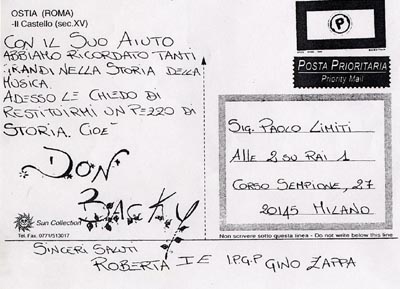 OSTIA (ROMA)
-Il Castello (sec.XV)
CON IL SUO AIUTO
ABBIAMO RICORDATO TANTI
GRANDI NELLA STORIA DELLA
MUSICA.
ADESSO LE CHIEDO DI
RESTITUIRMI UN PEZZO DI
STORIA. CIOE'
DON
BACKY
Sun Collection
Tel. Fax. 0771/513017
SINCERI SALUTI
ROBERTA I E I P.G.P GINO ZAPPA
P
POSTA PRIORITARIA
Priority Mail
SIG. PAOLO LIMITI
ALLE 2 SU RAI 1
CORSO SEMPIONE, 27
20145 MILANO
Non scrivere sotto questa linea - Do not write below this line